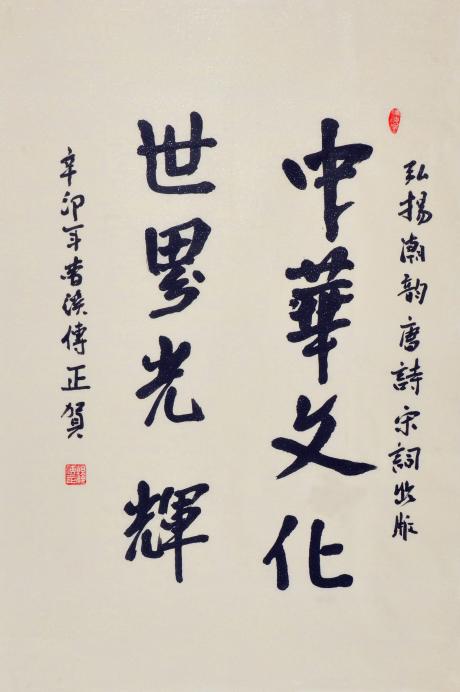 弘揚潮韵唐詩宋詞出版
中華文化
世界光輝
辛卯年香溪傅正賀